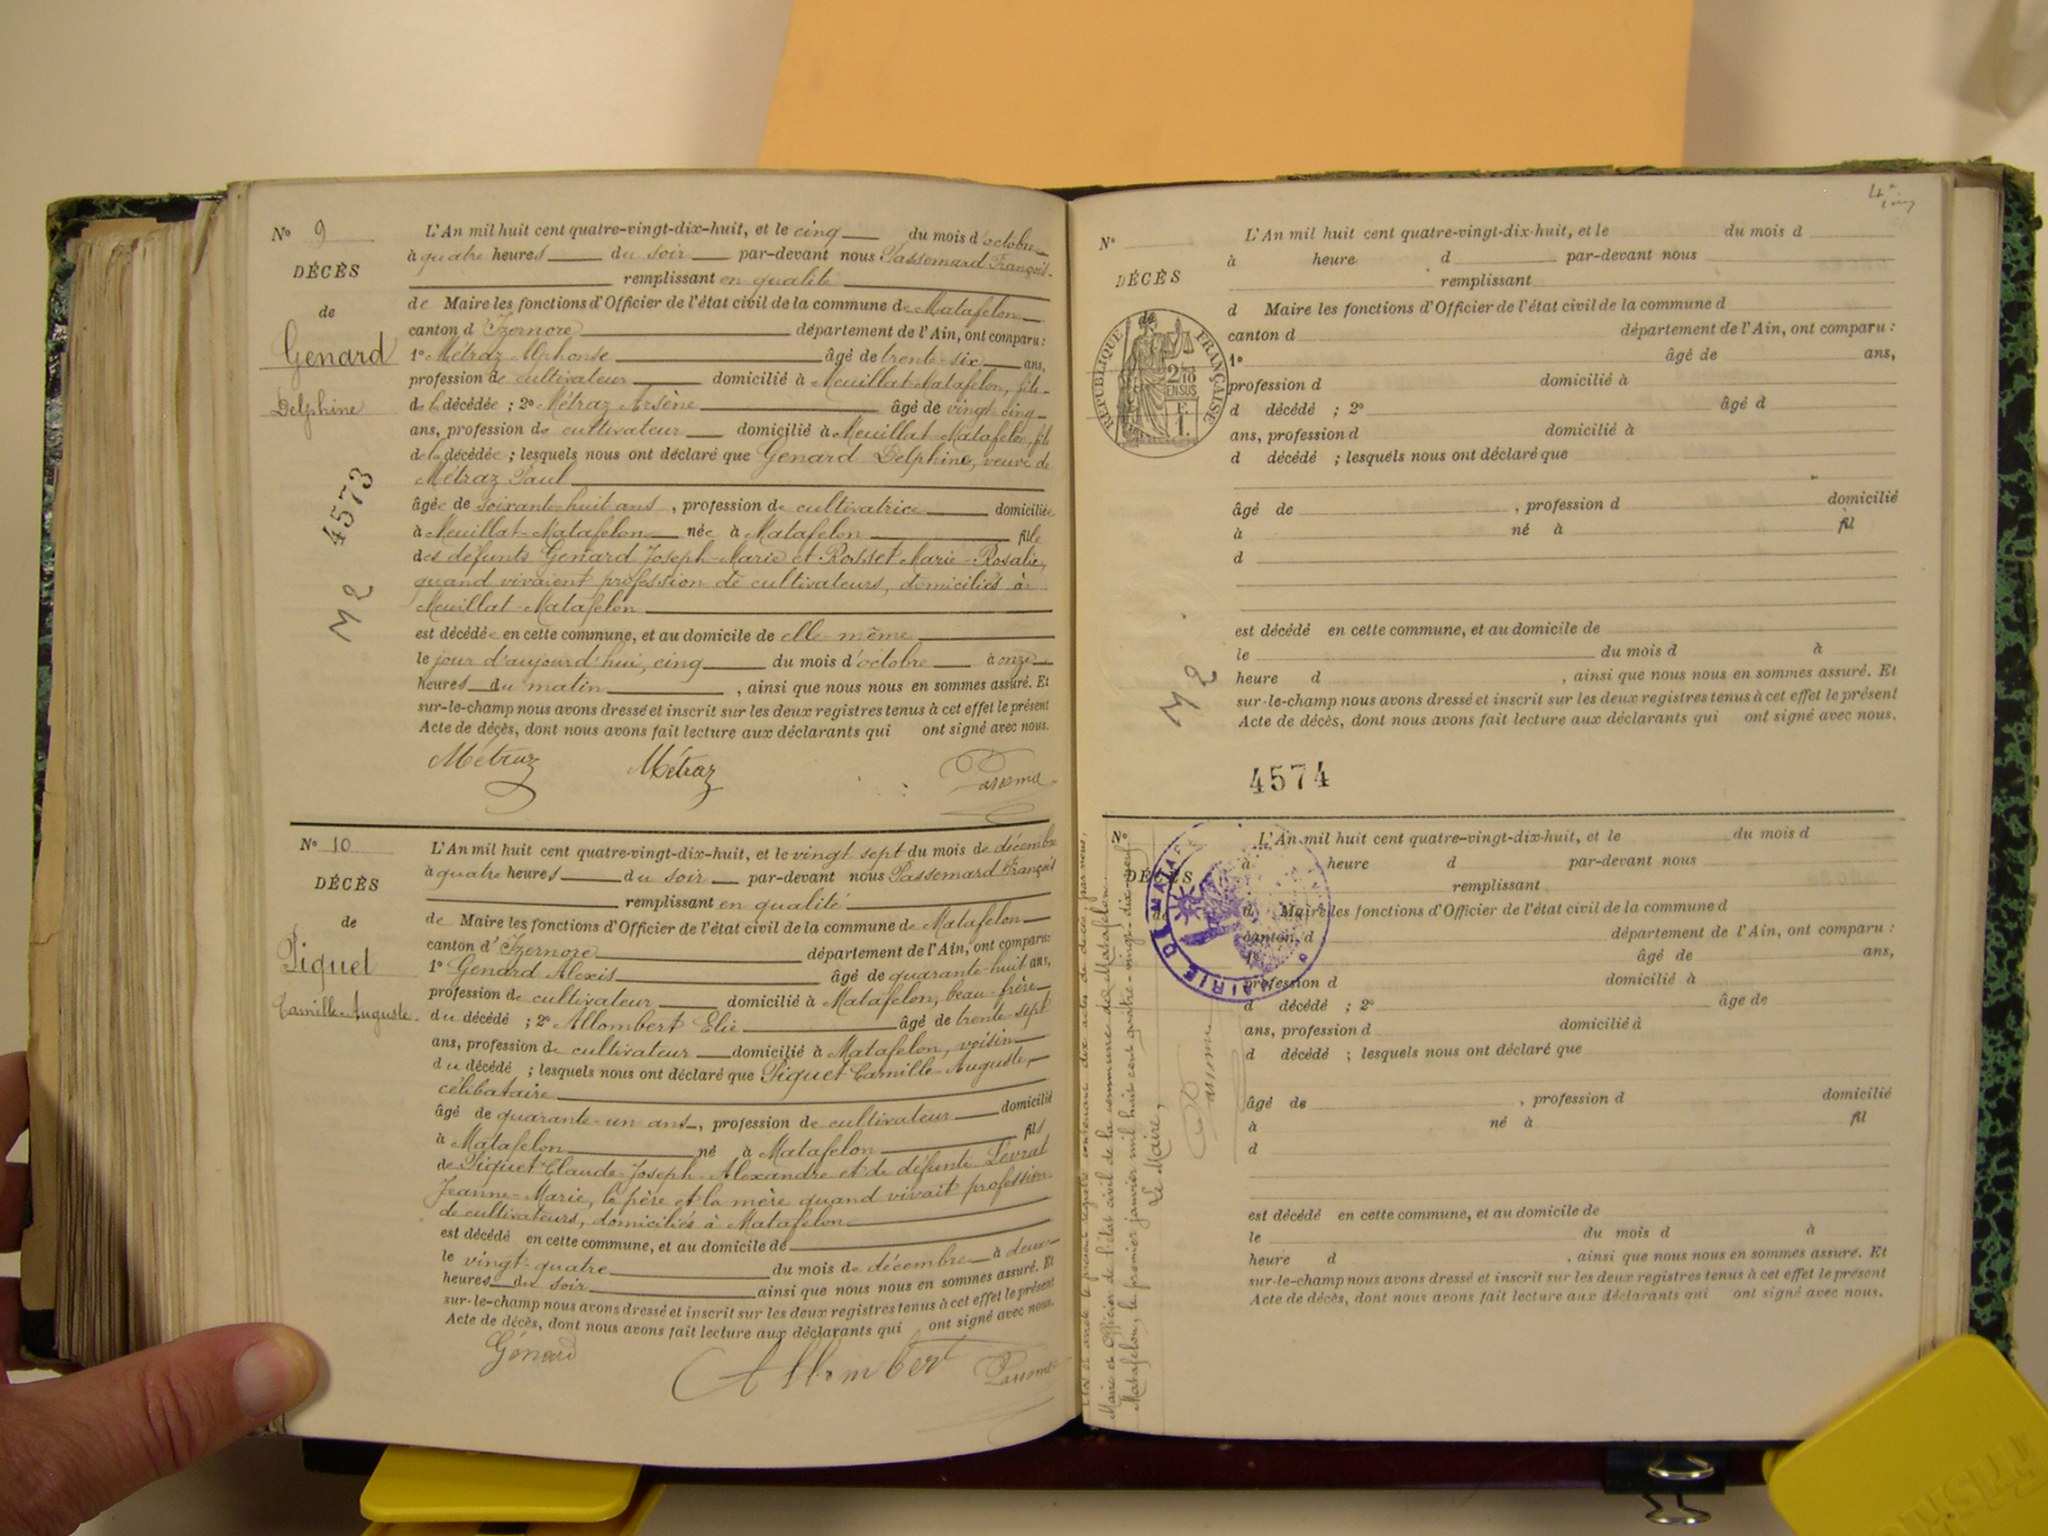 N° 9
DÉCÈS
de
Genard
Delphine
4573
M 2
L'An mil huit cent quatre-vingt-dix-huit, et le cinq du mois d'octobre
à quatre heures du soir par-devant nous Passemard François
remplissant en qualité
de Maire les fonctions d'Officier de l'état civil de la commune de Matafelon
canton d'Izernore département de l'Ain, ont comparu :
1° Métraz Alphonse âgé de trente-six ans,
profession de cultivateur domicilié à Meuillat-Matafelon, fils
de la décédée ; 2° Métraz Arsène âgé de vingt-cinq
ans, profession de cultivateur domicilié à Meuillat-Matafelon, fils
de la décédée ; lesquels nous ont déclaré que Genard Delphine, veuve de
Métraz Paul
âgée de soixante-huit ans, profession de cultivatrice domiciliée
à Meuillat-Matafelon née à Matafelon fille
des défunts Genard Joseph-Marie et Rosset Marie-Rosalie,
quand vivaient profession de cultivateurs, domiciliés à
Meuillat-Matafelon
est décédée en cette commune, et au domicile de elle-même
le jour d'aujourd'hui, cinq du mois d'octobre à onze
heures du matin, ainsi que nous nous en sommes assuré. Et
sur-le-champ nous avons dressé et inscrit sur les deux registres tenus à cet effet le présent
Acte de décès, dont nous avons fait lecture aux déclarants qui ont signé avec nous.
Métraz Métraz Passema
N° 10
DÉCÈS
de
Piquet
Camille-Auguste
L'An mil huit cent quatre-vingt-dix-huit, et le vingt sept du mois de décembre
à quatre heures du soir par-devant nous Passemard François
remplissant en qualité
de Maire les fonctions d'Officier de l'état civil de la commune de Matafelon
canton d'Izernore département de l'Ain, ont comparu :
1° Genard Alexis âgé de quarante-huit ans,
profession de cultivateur domicilié à Matafelon, beau-frère
du décédé ; 2° Allombert Elie âgé de trente sept
ans, profession de cultivateur domicilié à Matafelon, voisin
du décédé ; lesquels nous ont déclaré que Piquet Camille-Auguste,
célibataire
âgé de quarante-un ans, profession de cultivateur domicilié
à Matafelon né à Matafelon fils
de Piquet Claude-Joseph-Alexandre et de défunte Levrat
Jeanne-Marie, le père et la mère quand vivait profession
de cultivateurs, domiciliés à Matafelon
est décédé en cette commune, et au domicile de
le vingt-quatre du mois de décembre à deux
heures du soir ainsi que nous nous en sommes assuré. Et
sur-le-champ nous avons dressé et inscrit sur les deux registres tenus à cet effet le présent
Acte de décès, dont nous avons fait lecture aux déclarants qui ont signé avec nous.
Génard Allombert Passema
N°
DÉCÈS
de
RÉPUBLIQUE FRANÇAISE
2/10
EN SUS
F.
1.
M 2
L'An mil huit cent quatre-vingt-dix-huit, et le du mois d
à heure d par-devant nous
remplissant
d Maire les fonctions d'Officier de l'état civil de la commune d
canton d département de l'Ain, ont comparu :
1° âgé de ans,
profession d domicilié à
d décédé ; 2° âgé d
ans, profession d domicilié à
d décédé ; lesquels nous ont déclaré que
âgé de , profession d domicilié
à né à fil
d
est décédé en cette commune, et au domicile de
le du mois d à
heure d , ainsi que nous nous en sommes assuré. Et
sur-le-champ nous avons dressé et inscrit sur les deux registres tenus à cet effet le présent
Acte de décès, dont nous avons fait lecture aux déclarants qui ont signé avec nous.
4574
N°
DÉCÈS
de
MAIRIE DE MATAFE
L'An mil huit cent quatre-vingt-dix-huit, et le du mois d
à heure d par-devant nous
remplissant
d Maire les fonctions d'Officier de l'état civil de la commune d
canton d département de l'Ain, ont comparu :
1° âgé de ans,
profession d domicilié à
d décédé ; 2° âge de
ans, profession d domicilié à
d décédé ; lesquels nous ont déclaré que
âgé de , profession d domicilié
à né à fil
d
est décédé en cette commune, et au domicile de
le du mois d à
heure d , ainsi que nous nous en sommes assuré. Et
sur-le-champ nous avons dressé et inscrit sur les deux registres tenus à cet effet le présent
Acte de décès, dont nous avons fait lecture aux déclarants qui ont signé avec nous.
le présent registre contenant dix actes de décès, par nous,
Maire et Officier de l'état civil de la commune de Matafelon
Matafelon, le premier janvier mil huit cent quatre-vingt-dix-neuf.
Le Maire,
Passema